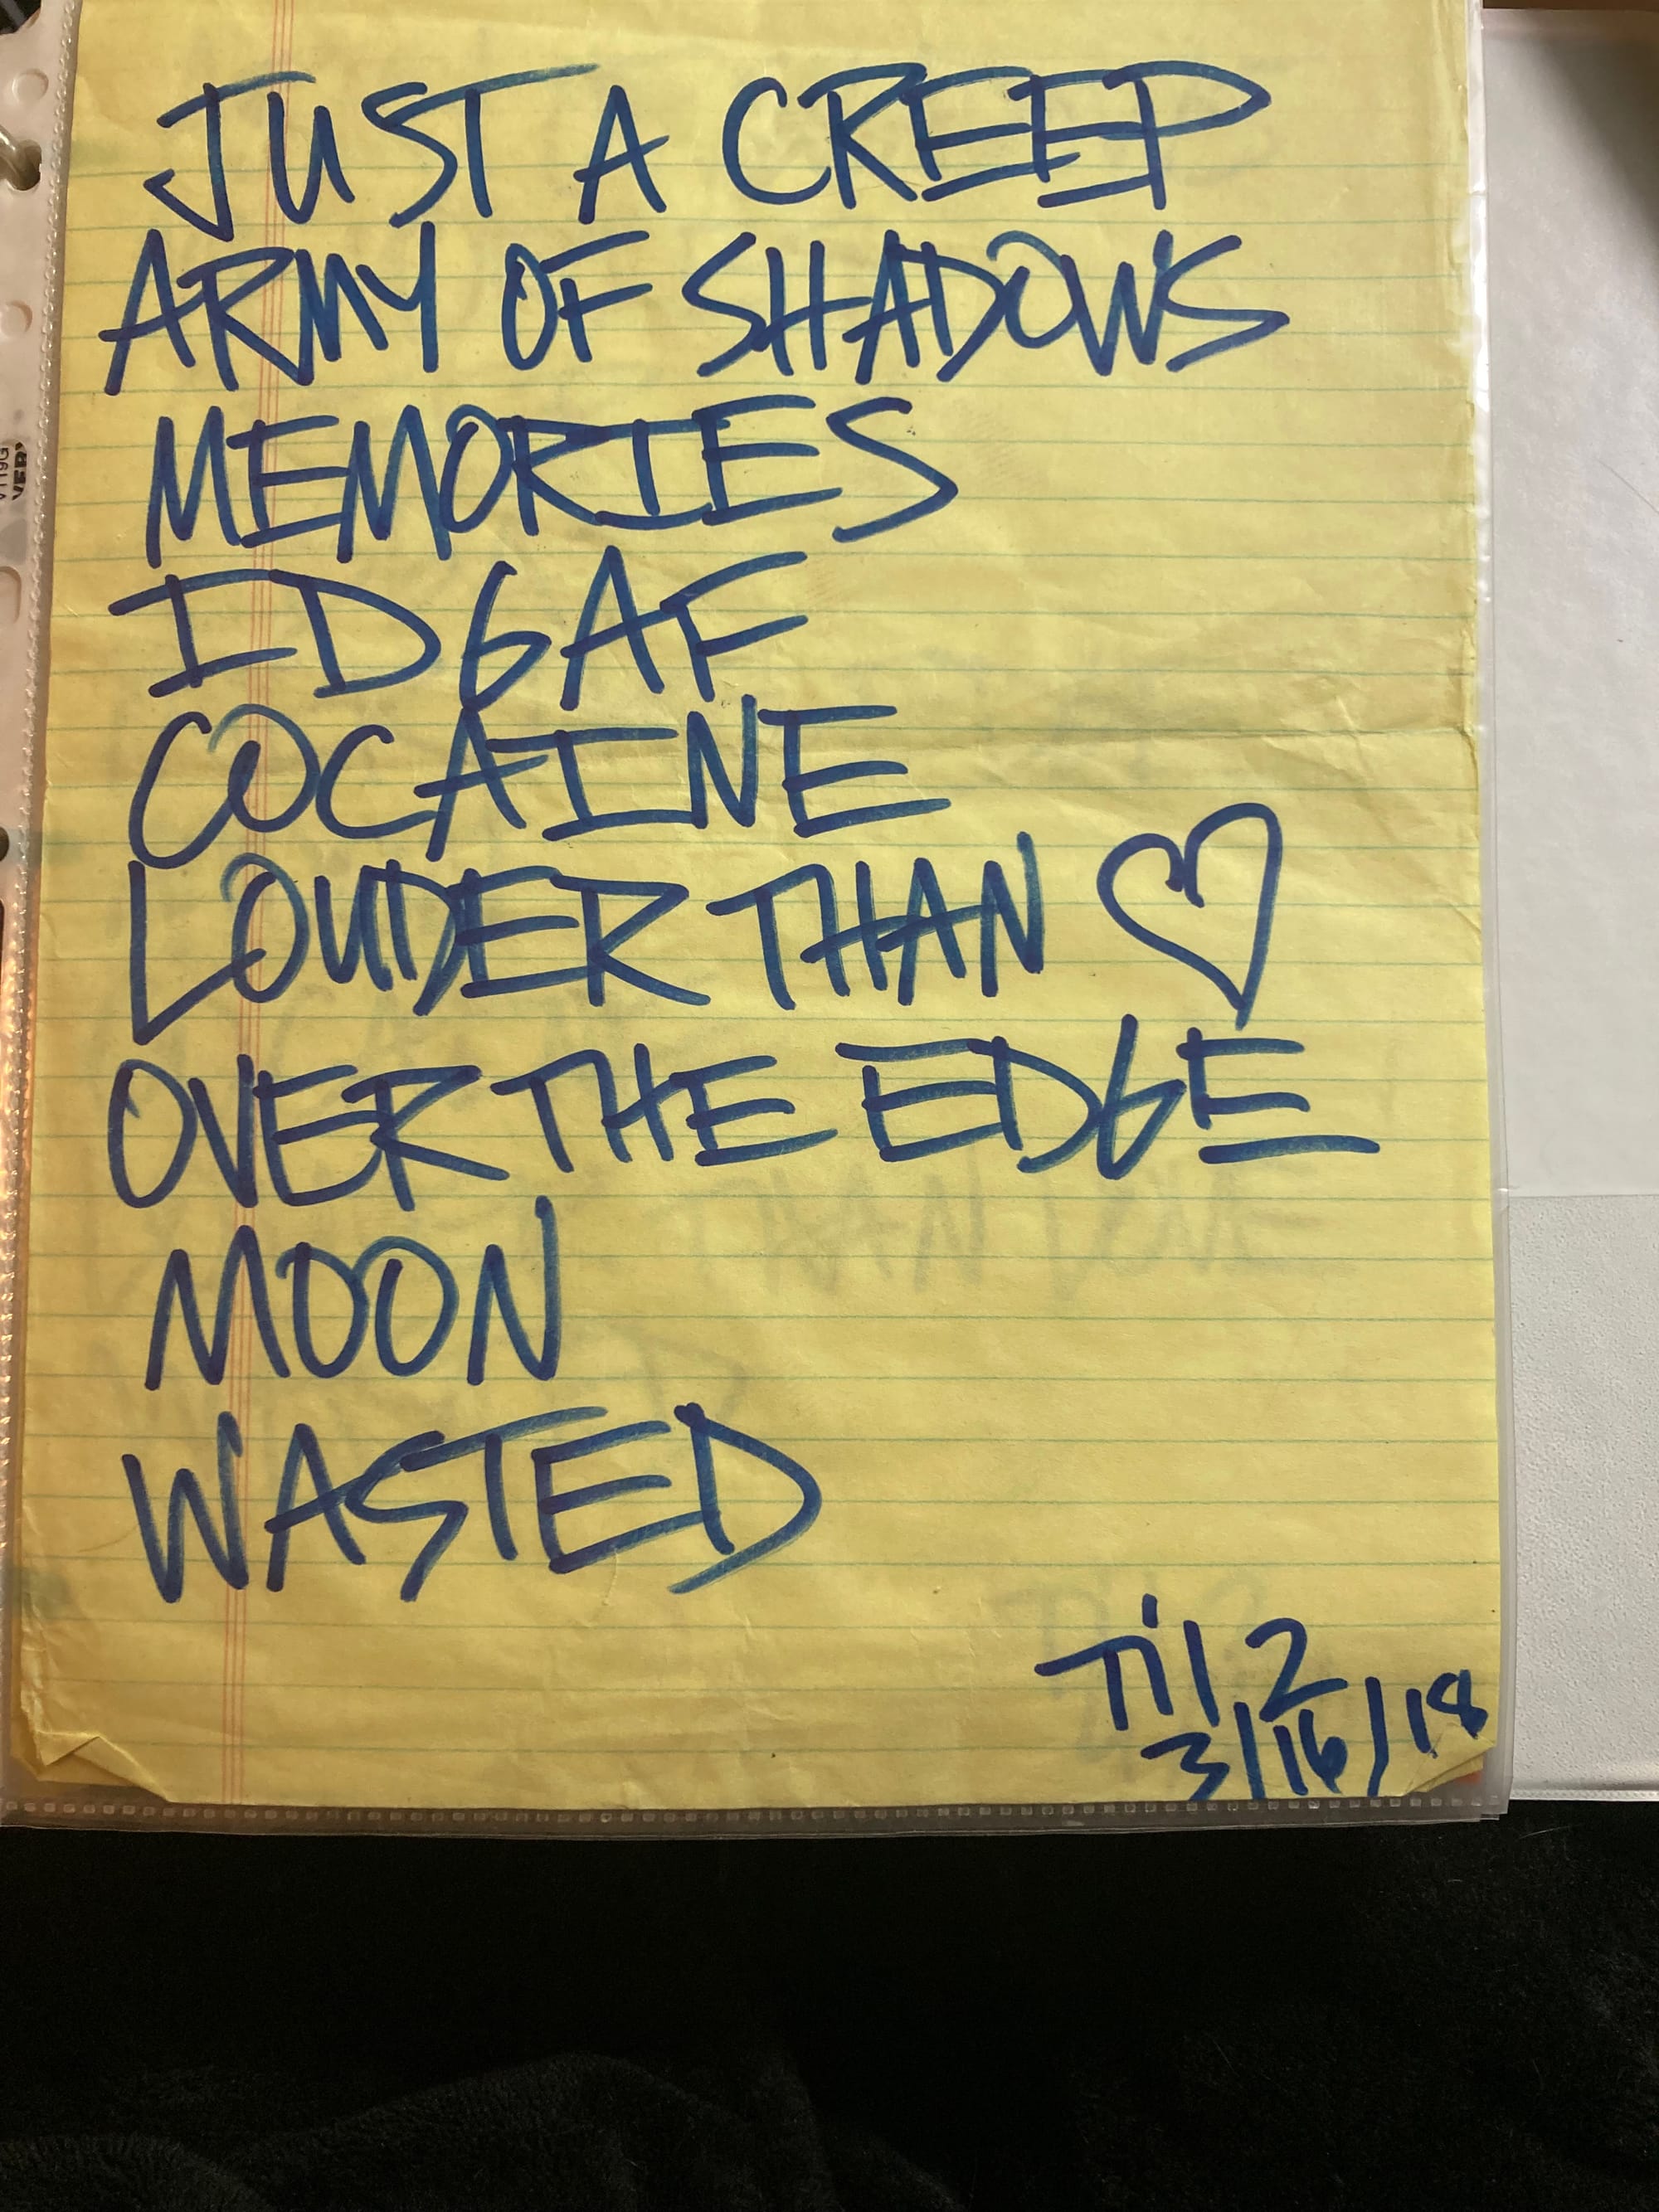 JUST A CREEP
ARMY OF SHADOWS
MEMORIES
IDGAF
COCAINE
LOUDER THAN ♡
OVER THE EDGE
MOON
WASTED
Til 2
3/16/18